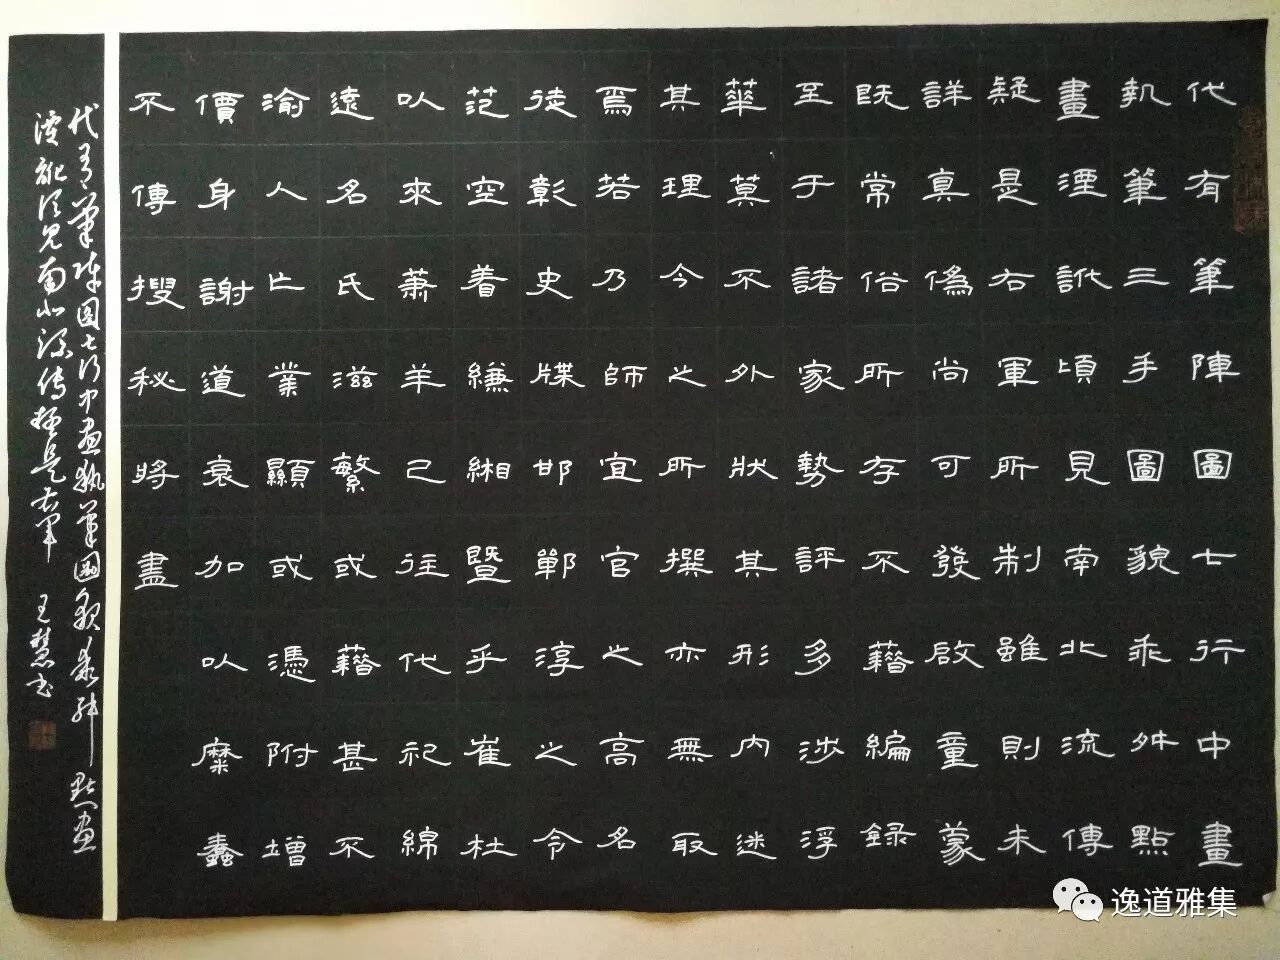 代有筆陣圖七行中畫
執筆三手圖貌乖舛點
畫湮訛頃見南北流傳
疑是右軍所制雖則未
詳真偽尚可發啟童蒙
既常俗所存不藉編錄
至于諸家勢評多涉浮
華莫不外狀其形內迷
其理今之所撰亦無取
焉若乃師宜官之高名
徒彰史牒邯鄲淳之令
范空着縑緗暨乎崔杜
以來蕭羊已往代祀綿
遠名氏滋繁或藉甚不
渝人亡業顯或憑附增
價身謝道衰加以糜蠹
不傳搜秘將盡
代有筆陣圖七行中畫執筆圖貌乖舛點畫
湮訛頃見南北流傳疑是右軍 王慧書
逸道雅集